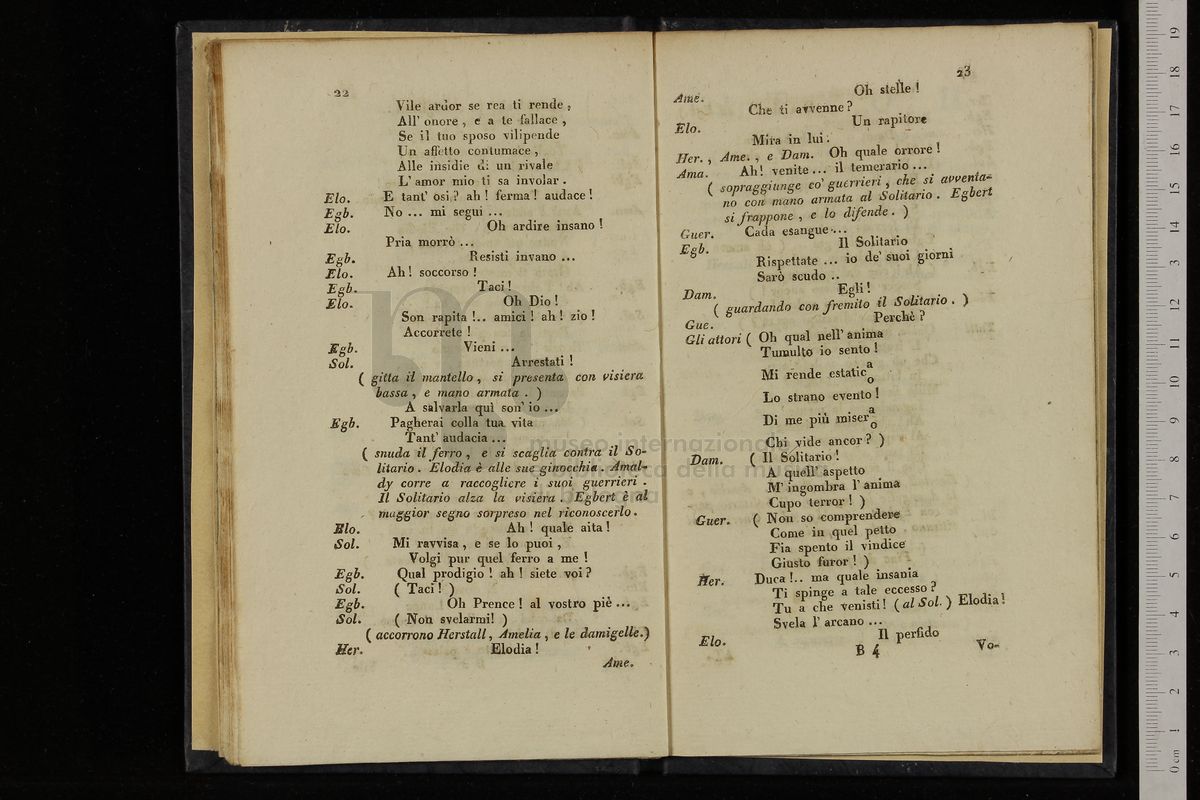 22
Vile ardor se rea ti rende,
All' onore, e a te fallace,
Se il tuo sposo vilipende
Un affetto contumace,
Alle insidie di un rivale
L' amor mio ti sa involar.
Elo. E tant' osi? ah! ferma! audace!
Egb. No ... mi segui ...
Elo. Oh ardire insano!
Pria morrò ...
Egb. Resisti invano ...
Elo. Ah! soccorso!
Egb. Taci!
Elo. Oh Dio!
Son rapita!.. amici! ah! zio!
Accorrete!
Egb. Vieni ...
Sol. Arrestati!
( gitta il mantello, si presenta con visiera
bassa, e mano armata. )
A salvarla quì son' io ...
Egb. Pagherai colla tua vita
Tant' audacia ...
( snuda il ferro, e si scaglia contra il So-
litario. Elodia è alle sue ginocchia. Amal-
dy corre a raccogliere i suoi guerrieri.
Il Solitario alza la visiera. Egbert è al
maggior segno sorpreso nel riconoscerlo.
Elo. Ah! quale aita!
Sol. Mi ravvisa, e se lo puoi,
Volgi pur quel ferro a me!
Egb. Qual prodigio! ah! siete voi?
Sol. ( Taci! )
Egb. Oh Prence! al vostro piè ...
Sol. ( Non svelarmi! )
( accorrono Herstall, Amelia, e le damigelle.)
Her. Elodia!
Ame.
23
Ame. Oh stelle!
Che ti avvenne?
Elo. Un rapitore
Mira in lui.
Her., Ame., e Dam. Oh quale orrore!
Ama. Ah! venite ... il temerario ...
( sopraggiunge co' guerrieri, che si avventa-
no con mano armata al Solitario. Egbert
si frappone, e lo difende. )
Guer. Cada esangue ...
Egb. Il Solitario
Rispettate ... io de' suoi giorni
Sarò scudo ..
Dam. Egli!
( guardando con fremito il Solitario. )
Gue. Perchè?
Gli attori ( Oh qual nell' anima
Tumulto io sento!
Mi rende estatic a o
Lo strano evento!
Di me più miser a o
Chi vide ancor? )
Dam. ( Il Solitario!
A quell' aspetto
M' ingombra l' anima
Cupo terror! )
Guer. ( Non so comprendere
Come in quel petto
Fia spento il vindice
Giusto furor! )
Her. Duca!.. ma quale insania
Ti spinge a tale eccesso?
Tu a che venisti! (al Sol.) Elodia!
Svela l' arcano ...
Elo. Il perfido
B 4 Vo-
museo internazionale
biblioteca della musica
di bologna